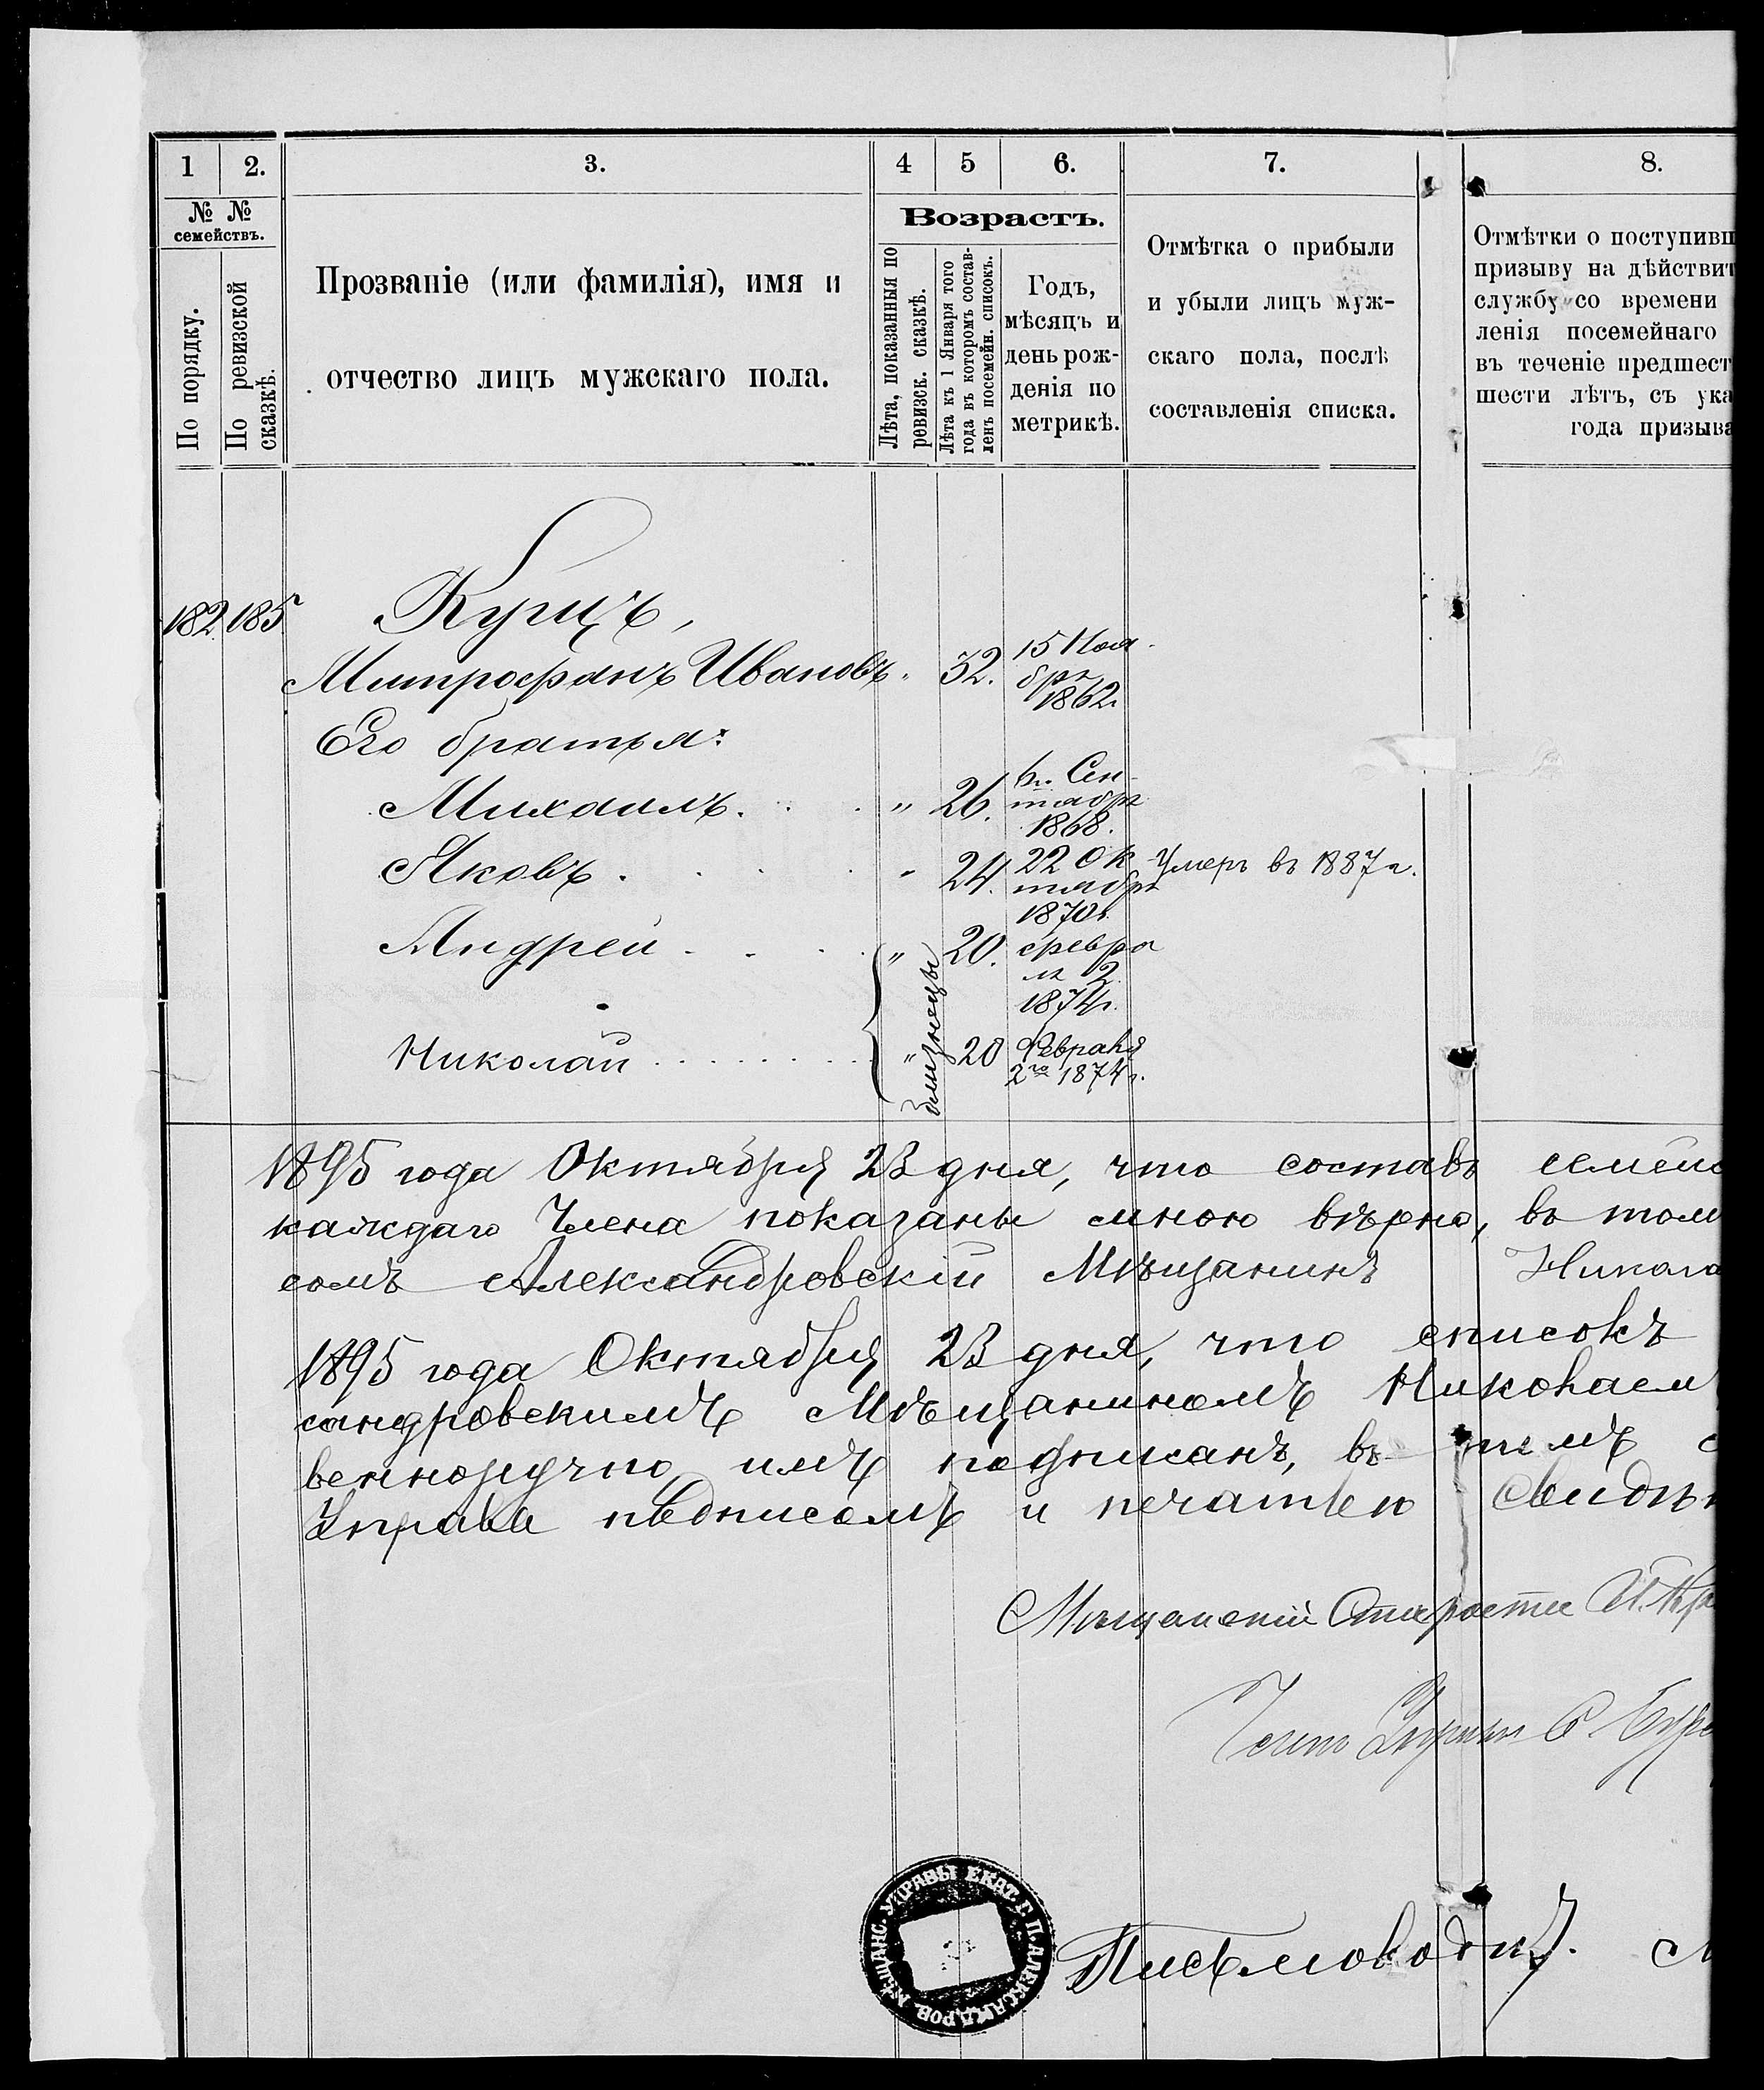 1
2.
3.
4
5
6.
7.
8.
№ №
семействъ.
По порядку.
По ревизской
сказкѣ.
Прозваніе (или фамилія), имя и
отчество лицъ мужскаго пола.
Возрастъ.
Лѣта, показанныя по
ревизск. сказкѣ.
Лѣта къ 1 Января того
года въ которомъ состав-
ленъ посемейн. списокъ.
Годъ,
мѣсяцъ и
день рож-
денія по
метрикѣ.
Отмѣтка о прибыли
и убыли лицъ муж-
скаго пола, послѣ
составленія списка.
Отмѣтки о поступивш
призыву на дѣйствит
службу со времени
ленія посемейнаго
въ теченіе предшест
шести лѣтъ, съ ука
года призыва
182 185 Куцъ,
Митрофанъ Ивановъ " 32. 15 Ноя
бря
1862.
Его братья:
Михаилъ " 26. Сен
тября
1868.
Яковъ " 24. 22 Ок Умеръ въ 1887 г.
тября
1870 г.
Андрей " 20. февра
ля 2
1874 г.
близнецы
Николай " 20 Февраля
2го 1874 г.
1895 года Октября 23 дня, что составъ семейс
каждаго Члена показаны мною вѣрно, въ том
сомъ Александровскій Мѣщанинъ Никола
1895 года Октября 23 дня, что списокъ
сандровскимъ Мѣщаниномъ Николаем
венноручно имъ подписанъ, въ томъ с
Управа подписомъ и печатью Свидѣт
Мѣщанскій Староста И. Кр
Членъ Управы
Письмоводит.
МѢЩАНС. УПРАВЫ ЕКАТ. Г. П. АЛЕКСАНДРОВ.